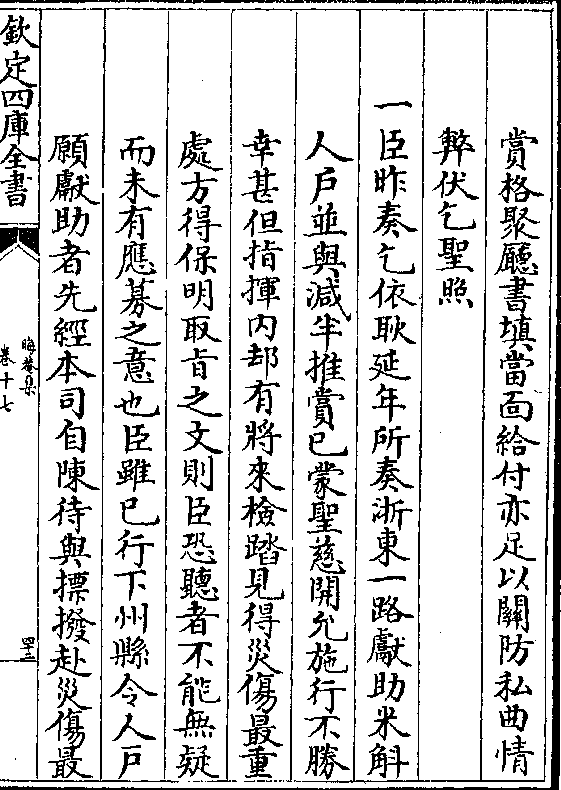 賞格聚廳書填當面給付亦足以關防私曲情
弊伏乞聖照
一臣昨奏乞依耿延年所奏浙東一路獻助米斛
人戶並與減半推賞已蒙聖慈開允施行不勝
幸甚但指揮內却有將來檢踏見得災傷最重
處方得保明取旨之文則臣恐聽者不能無疑
而未有應募之意也臣雖已行下州縣令人戶
願獻助者先經本司自陳待與摽撥赴災傷最
欽定四庫全書
晦菴集
卷十七